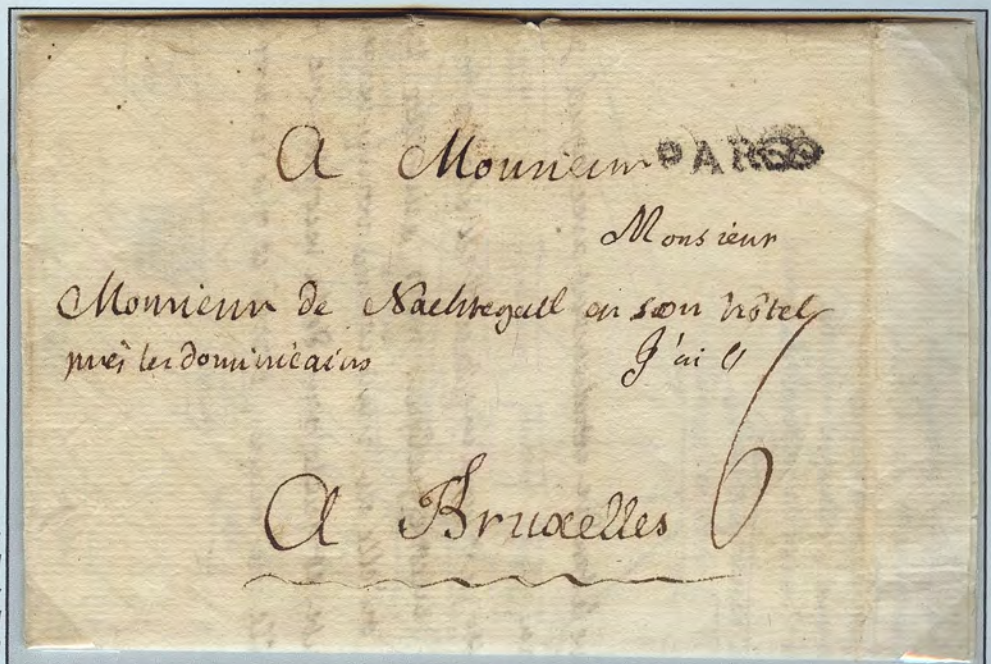 A Monsieur PARIS
Monsieur
Monsieur de Nachtegall en son hôtel
près les dominicains J'ai
A Bruxelles 6